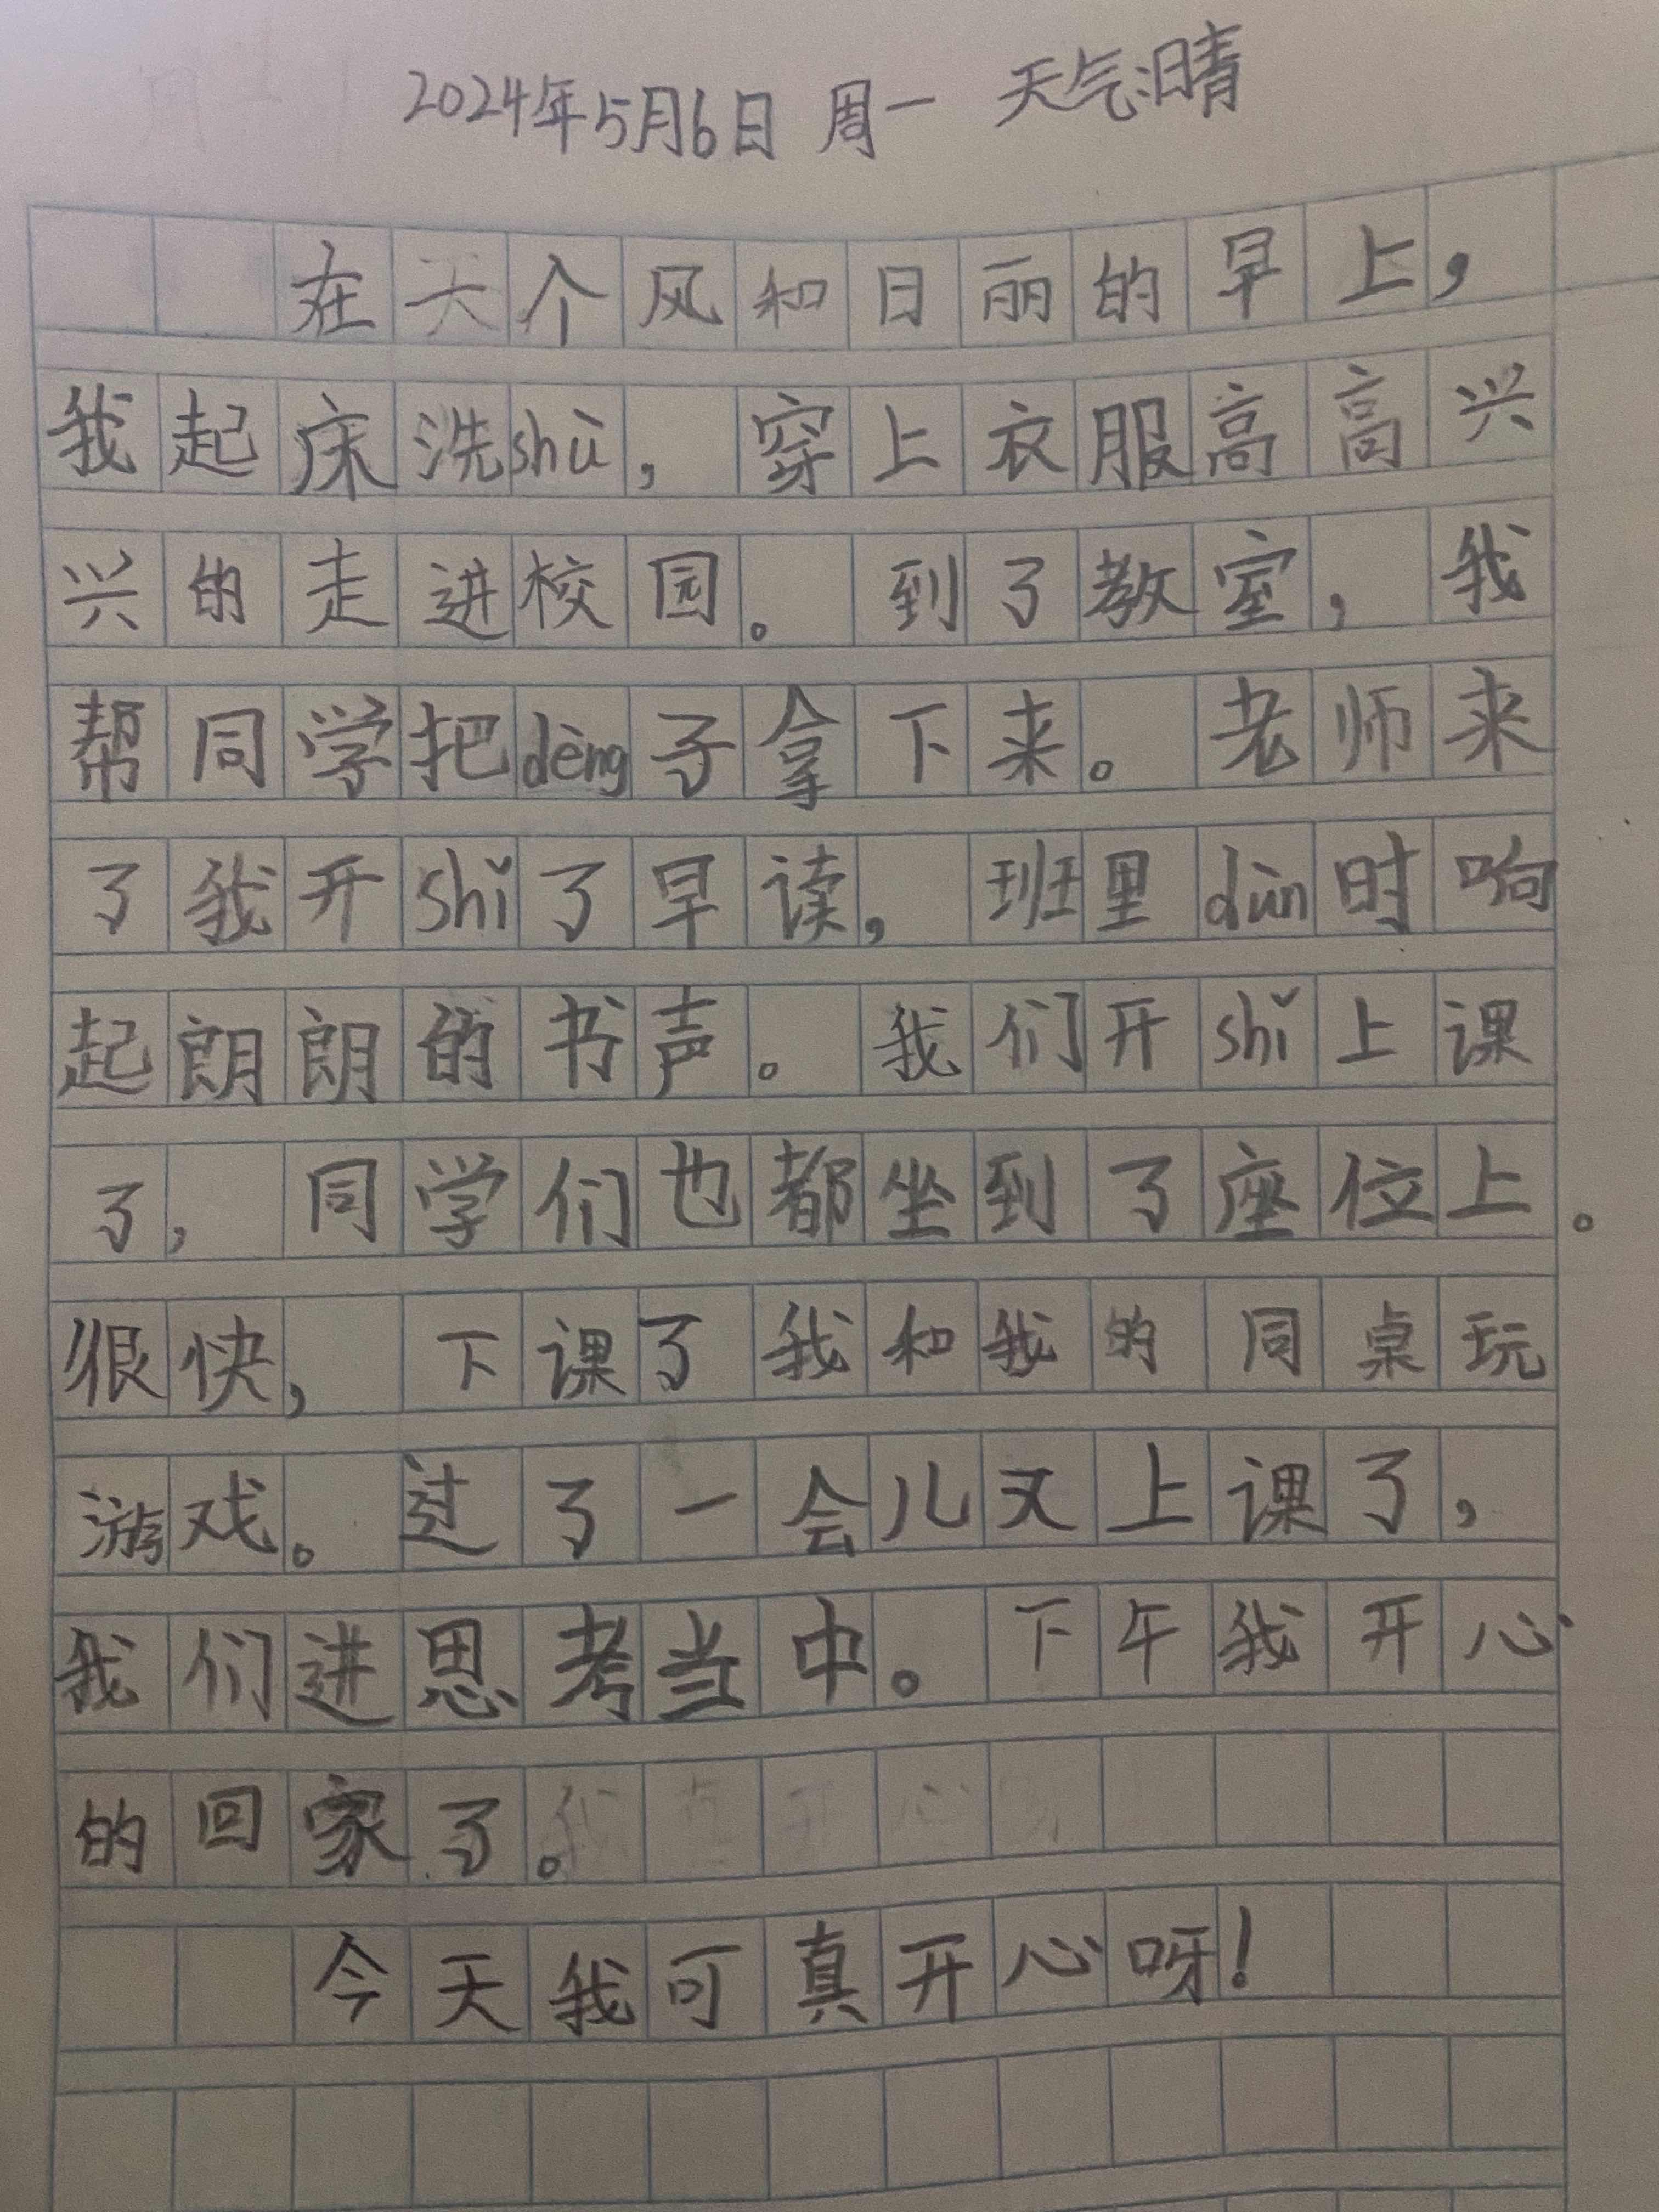 2024年5月6日 周一 天气:晴
在一个风和日丽的早上,
我起床洗shù,穿上衣服高高兴
兴的走进校园。到了教室,我
帮同学把dèng子拿下来。老师来
了我开shǐ了早读,班里dùn时响
起朗朗的书声。我们开shǐ上课
了,同学们也都坐到了座位上。
很快,下课了我和我的同桌玩
游戏。过了一会儿又上课了,
我们进思考当中。下午我开心
的回家了。
今天我可真开心呀!